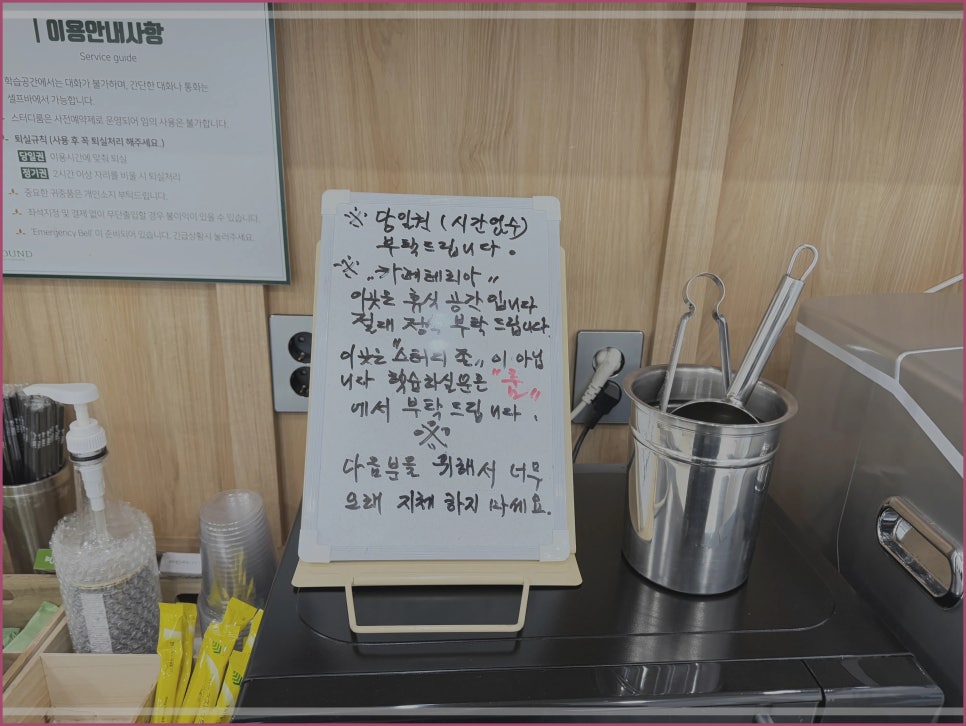 이용안내사항
Service guide
학습공간에서는 대화가 불가하며, 간단한 대화나 통화는
셀프바에서 가능합니다.
스터디룸은 사전예약제로 운영되어 임의 사용은 불가합니다.
퇴실규칙 (사용 후 꼭 퇴실처리 해주세요.)
당일권 이용시간에 맞춰 퇴실
정기권 2시간 이상 자리를 비울 시 퇴실처리
중요한 귀중품은 개인소지 부탁드립니다.
좌석지정 및 결제 없이 무단출입할 경우 불이익이 있을 수 있습니다.
'Emergency Bell' 이 준비되어 있습니다. 긴급상황시 눌러주세요.
OUND
※ 당일권 (시간엄수)
부탁드립니다.
※ "카페테리아"
이곳은 휴식 공간 입니다
절대 정숙 부탁 드립니다.
이곳은 "스터디 존" 이 아닙
니다 학습과 질문은 "룸"
에서 부탁 드립니다.
※
다음분을 위해서 너무
오래 지체 하지 마세요.